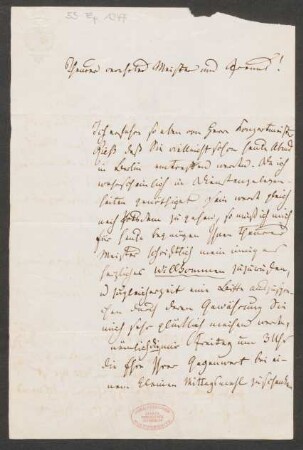 55 Ep. 1247
Theurer verehrter Meister und Freund!
Ich erfahre so eben von Herrn Konzertmeister
Rieß daß Sie vielleicht schon heute Abend
in Berlin eintreffen werden. Da ich
wahrscheinlich in Dienstangelegen-
heiten genöthigt sein werde gleich
nach Potsdam zu gehen, so muß ich mich
für heute begnügen Ihnen theurer
Meister schriftlich mein innigstes
herzliches Willkommen zuzurufen,
u zugleicherzeit eine Bitte auszuspre-
chen durch deren Gewährung Sie
mich sehr glücklich machen werden,
nämlich mir Freitag um 3 Uhr
die Ehre Ihrer Gegenwart bei ei-
nem kleinen Mittagsmahl zu schenken